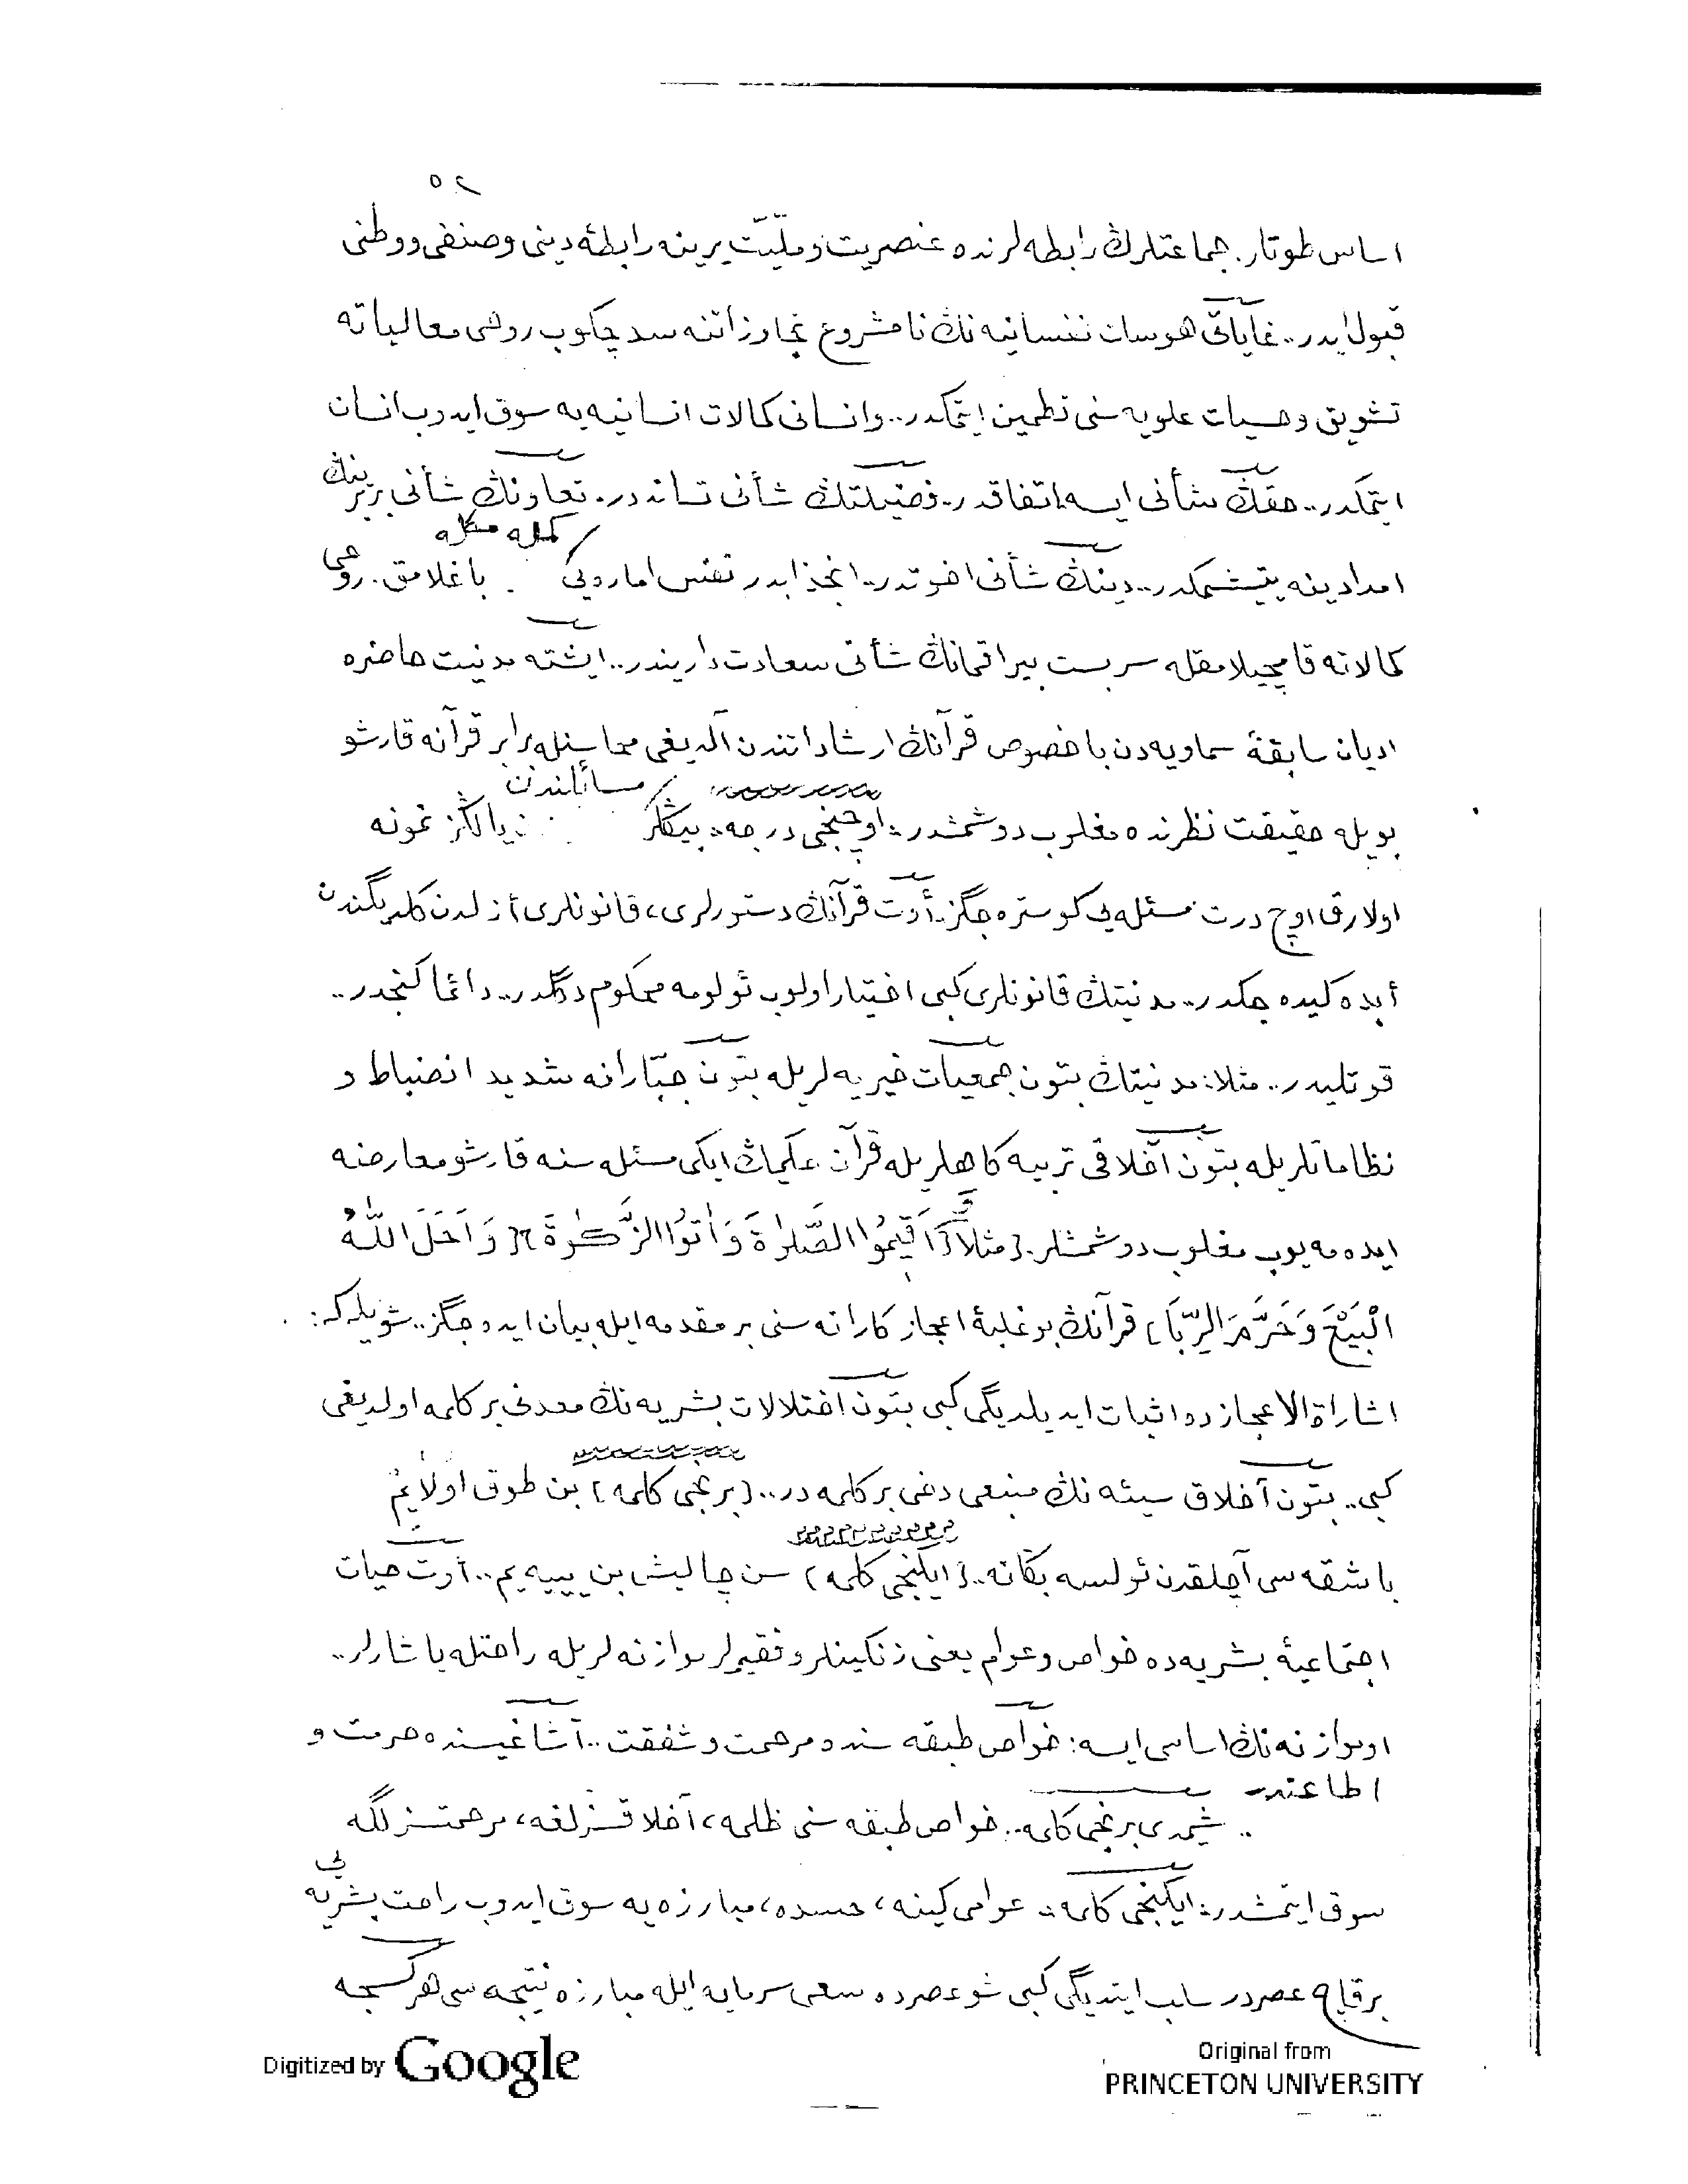 ٥٢
اساس طوتار. جماعتلرڭ رابطه‌لرنده عنصريت و ملّيّت يرينه رابطهٔ دينى و صنفى و وطنى
قبول ايدر.. غاياتى هوسات نفسانيه‌نڭ نامشروع تجاوزاتنه سد چكوب روحى معالياته
تشويق و حسيات علويه‌سنى تطمين ايتمكدر.. و انسانى كمالات انسانيه‌يه سوق ايدوب انسان
ايتمكدر.. حقڭ شأنى ايسه اتفاقدر. فضيلتڭ شأنى تسانددر. تعاونڭ شأنى بربرينڭ
امدادينه يتيشمكدر.. دينڭ شأنى اخوتدر. انجذابدر نفس اماره‌يى كمله مكله باغلامق. روحى
كمالاته قامچيلامقله سربست بيراقمانڭ شأنى سعادت داريندر.. ايشته مدنيت حاضره
اديان سابقهٔ سماويه‌دن باخصوص قرآنڭ ارشاداتندن آلديغى محاسنله برابر قرآنه قارشو
بويله حقيقت نظرنده مغلوب دوشمشدر: اوچنجى درجه: بيڭلر مسائلندن يالڭز نمونه
اولارق اوچ درت مسئله‌يى كوستره‌جگز. أوت قرآنڭ دستورلرى، قانونلرى أزلدن كلديگندن
أبده كيده‌جكدر.. مدنيتڭ قانونلرى كبى اختيار اولوب ئولومه محكوم دگلدر.. دائما كنجدر..
قوتليدر.. مثلا: مدنيتڭ بتون جمعيات خيريه‌لريله بتون جبّارانه شديد انضباط و
نظاماتلريله بتون آخلاقى تربيه كاهلريله قرآن حكيمڭ ايكى مسئله‌سنه قارشو معارضه
ايده‌مه‌يوب مغلوب دوشمشلر. [مثلاً] [وَاَقِيمُوا الصَّلٰوةَ وَاٰتُوا الزَّكٰوةَ] [وَاَحَلَّ اللّٰهُ
الْبَيْعَ وَحَرَّمَ الرِّبَا] قرآنڭ بو غلبهٔ اعجازكارانه‌سنى بر مقدمه ايله بيان ايده‌جگز.. شويله‌كه:
اشاراة الاعجازده اثبات ايديلديگى كبى بتون اختلالات بشريه‌نڭ معدنى بر كلمه اولديغى
كبى.. بتون آخلاق سيئه‌نڭ منبعى دخى بر كلمه‌در.. [برنجى كلمه] بن طوق اولايم
باشقه‌سى آچلقدن ئولسه بڭا نه.. [ايكنجى كلمه] سن چاليش بن ييه‌يم.. أوت حيات
اجتماعيهٔ بشريه‌ده خواص و عوام يعنى زنكينلر و فقيرلر موازنه‌لريله راحتله ياشارلر..
او موازنه‌نڭ اساسى ايسه: خواص طبقه‌سنده مرحمت و شفقت.. آشاغيسنده حرمت و
اطاعتدر
.. شيمدى برنجى كلمه.. خواص طبقه‌سنى ظلمه، آخلاقسزلغه، مرحمتسزلگه
سوق ايتمشدر: ايكنجى كلمه: عوامى كينه، حسده، مبارزه‌يه سوق ايدوب راحت بشريه‌يى
بر قاچ عصردر سلب ايتديگى كبى شو عصرده سعى سرمايه ايله مبارزه نتيجه‌سى هركسجه
Digitized by Google
Original from
PRINCETON UNIVERSITY